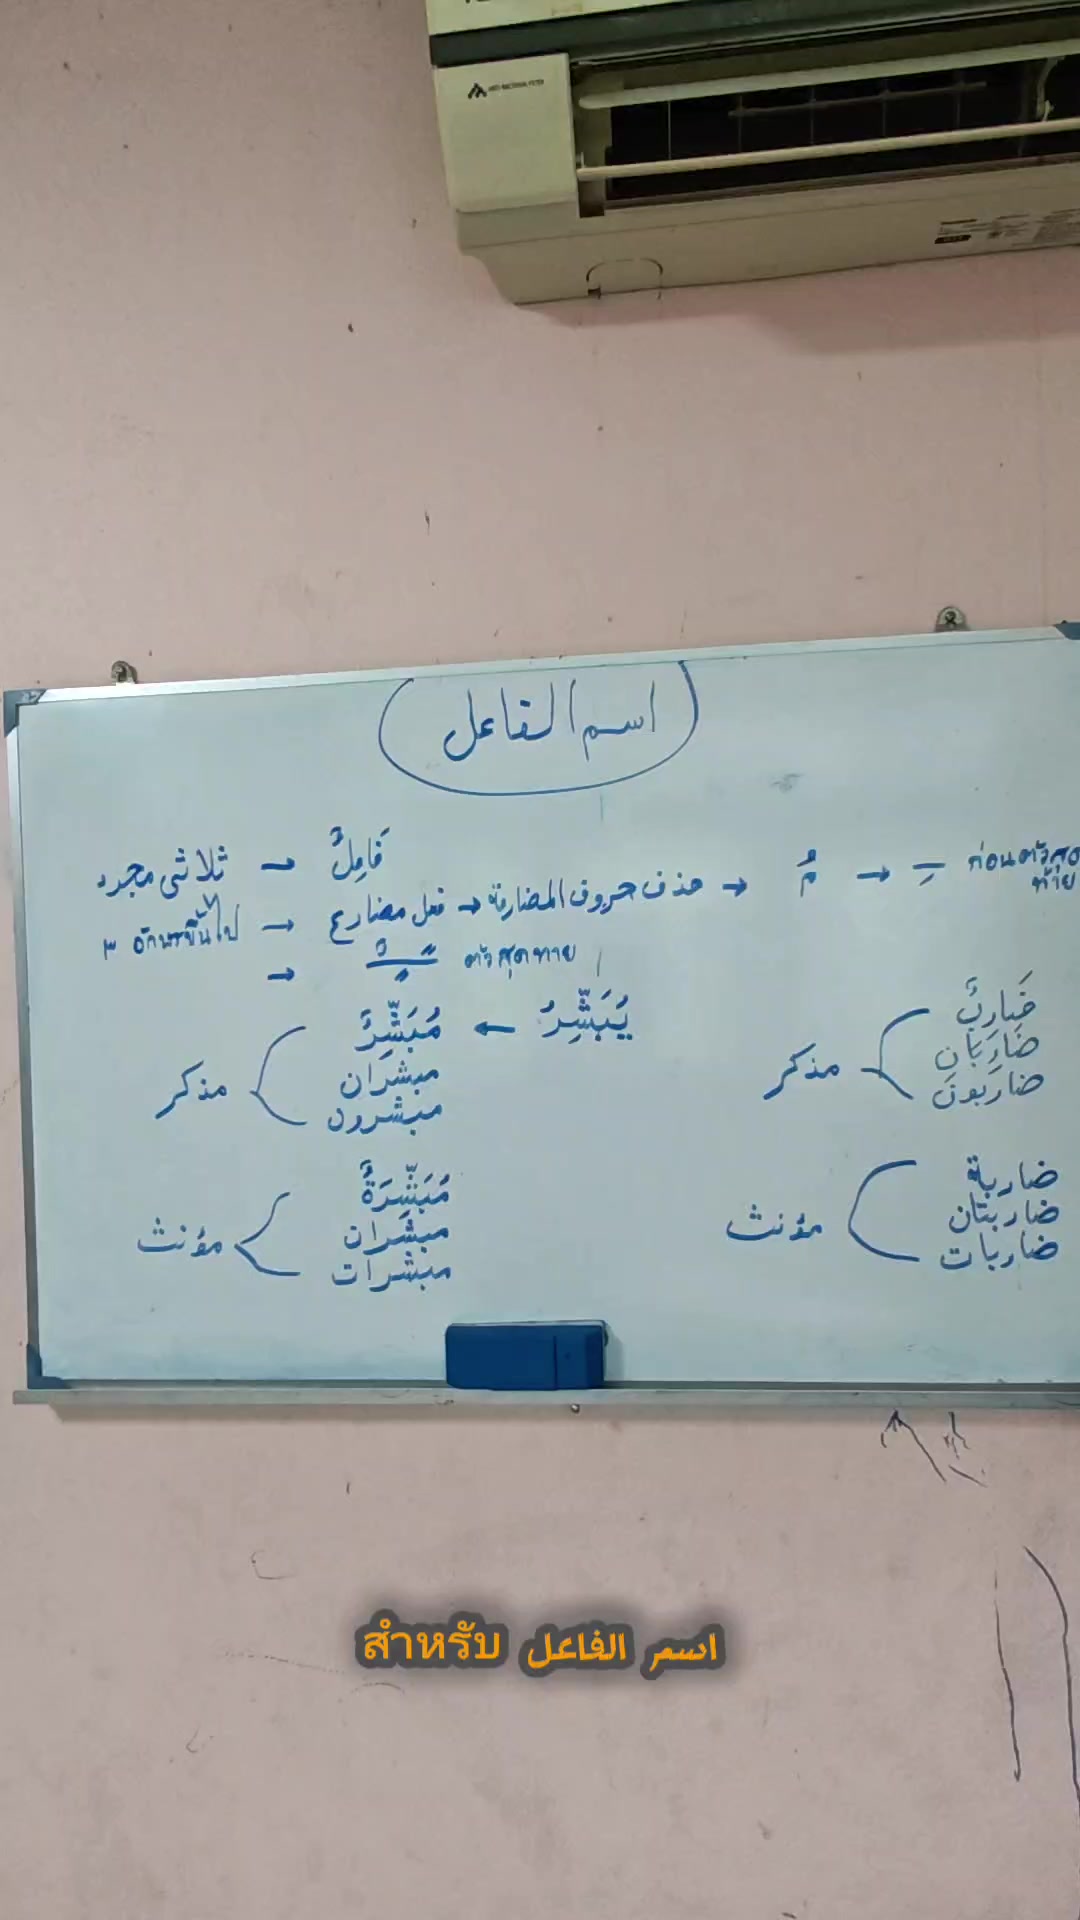 ANTI-BACTERIAL FILTER
اسم الفاعل
ثلاثى مجرد → فَاعِلٌ
๓ อักษรขึ้นไป → فعل مضارع → حذف حروف المضارعة → مُ → ـِ ก่อนตัวสุดท้าย
→ ـٌ ตัวสุดท้าย
يُبَشِّرُ ← مُبَشِّرٌ
مبشران
مبشرون
مذكر
مُبَشِّرَةٌ
مبشران
مبشرات
مؤنث
ضَارِبٌ
ضَارِبَانِ
ضاربونَ
مذكر
ضاربة
ضاربتان
ضاربات
مؤنث
สำหรับ اسم الفاعل